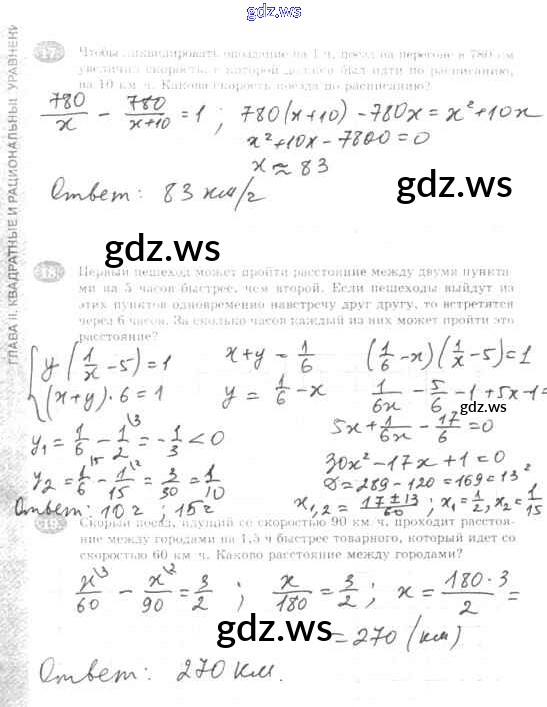 gdz.ws
ГЛАВА II. КВАДРАТНЫЕ И РАЦИОНАЛЬНЫЕ УРАВНЕНИ
17. Чтобы ликвидировать опоздание на 1 ч, поезд на перегоне в 780 км
увеличил скорость, с которой должен был идти по расписанию,
на 10 км/ч. Какова скорость поезда по расписанию?
780/x - 780/(x+10) = 1 ; 780(x+10) - 780x = x²+10x
x²+10x - 7800 = 0
x ≈ 83
Ответ: 83 км/г
gdz.ws
gdz.ws
18. Первый пешеход может пройти расстояние между двумя пункта-
ми на 5 часов быстрее, чем второй. Если пешеходы выйдут из
этих пунктов одновременно навстречу друг другу, то встретятся
через 6 часов. За сколько часов каждый из них может пройти это
расстояние?
{ y(1/x - 5) = 1 x+y = 1/6 (1/6 - x)(1/x - 5) = 1
(x+y)·6 = 1 y = 1/6 - x 1/6x - 5/6 - 1 + 5x - 1 =
gdz.ws
y₁ = 1/6 - 1/2 \3 = -1/3 < 0 5x + 1/6x - 17/6 = 0
30x² - 17x + 1 = 0
y₂ = 1/6 - 1/15 \2 = 3/30 = 1/10 D = 289 - 120 = 169 = 13²
gdz.ws
Ответ: 10 г ; 15 г x₁,₂ = (17±13)/60 ; x₁ = 1/2, x₂ = 1/15
19. Скорый поезд, идущий со скоростью 90 км/ч, проходит расстоя-
ние между городами на 1,5 ч быстрее товарного, который идет со
скоростью 60 км/ч. Каково расстояние между городами?
x \3/60 - x \2/90 = 3/2 ; x/180 = 3/2 ; x = 180·3/2 =
gdz.ws
= 270 (км)
Ответ: 270 км.
gdz.ws